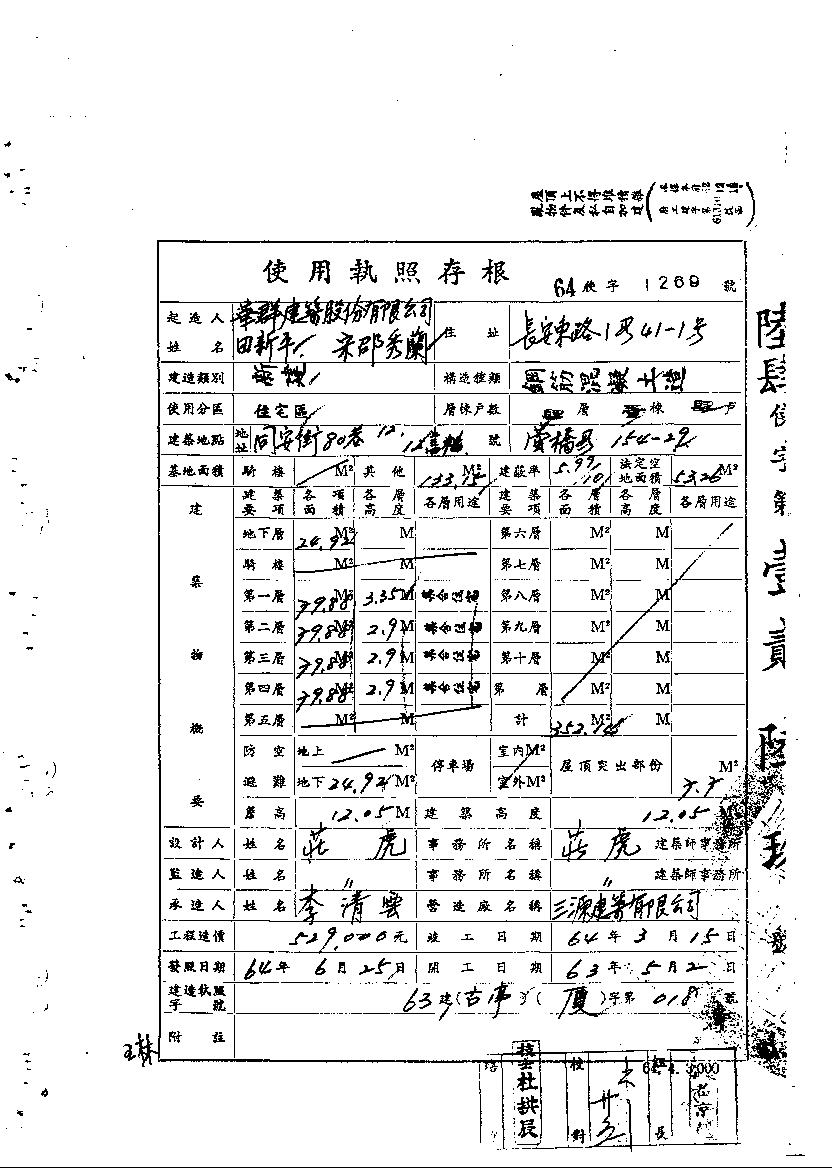 屋頂上不得堆積雜
亂物件及私自加建
使用執照存根
64 使字 1269 號
起造人 姓名
華群建築股份有限公司
田新平 宋邵秀蘭
住址 長安東路1号41-1号
建造類別 新建 構造種類 鋼筋混凝土造
使用分區 住宅區 層棟戶數 層 棟 戶
建築地點 地址 同安街80巷 12. 號 154-29
基地面積 騎樓 M² 其他 133.15 M² 建蔽率 5.99/10 法定空地面積 53.26 M²
建築要項 各項面積 各層高度 各層用途 建築要項 各層面積 各層高度 各層用途
建築物概要
地下層 24.92 M² M 第六層 M² M
騎樓 M² M 第七層 M² M
第一層 79.88 M² 3.35 M 集合住宅 第八層 M² M
第二層 79.88 M² 2.9 M 集合住宅 第九層 M² M
第三層 79.88 M² 2.9 M 集合住宅 第十層 M² M
第四層 79.88 M² 2.9 M 集合住宅 第 層 M² M
第五層 M² M 計 M²
防空避難 地上 M² 停車場 室內 M² 屋頂突出部份 M²
地下 24.92 M² 室外 M²
簷高 12.05 M 建築高度 12.05 M
設計人 姓名 莊虎 事務所名稱 莊虎 建築師事務所
監造人 姓名 〃 事務所名稱 〃 建築師事務所
承造人 姓名 李清雲 營造廠名稱 三源建築有限公司
工程造價 529,000元 竣工日期 64年3月15日
發照日期 64年6月25日 開工日期 63年5月2日
建造執照字號 63建(古亭)(價)字第018號
附註
陸肆使字第壹貳陸玖號
王林
技士杜拱辰
校對
股長